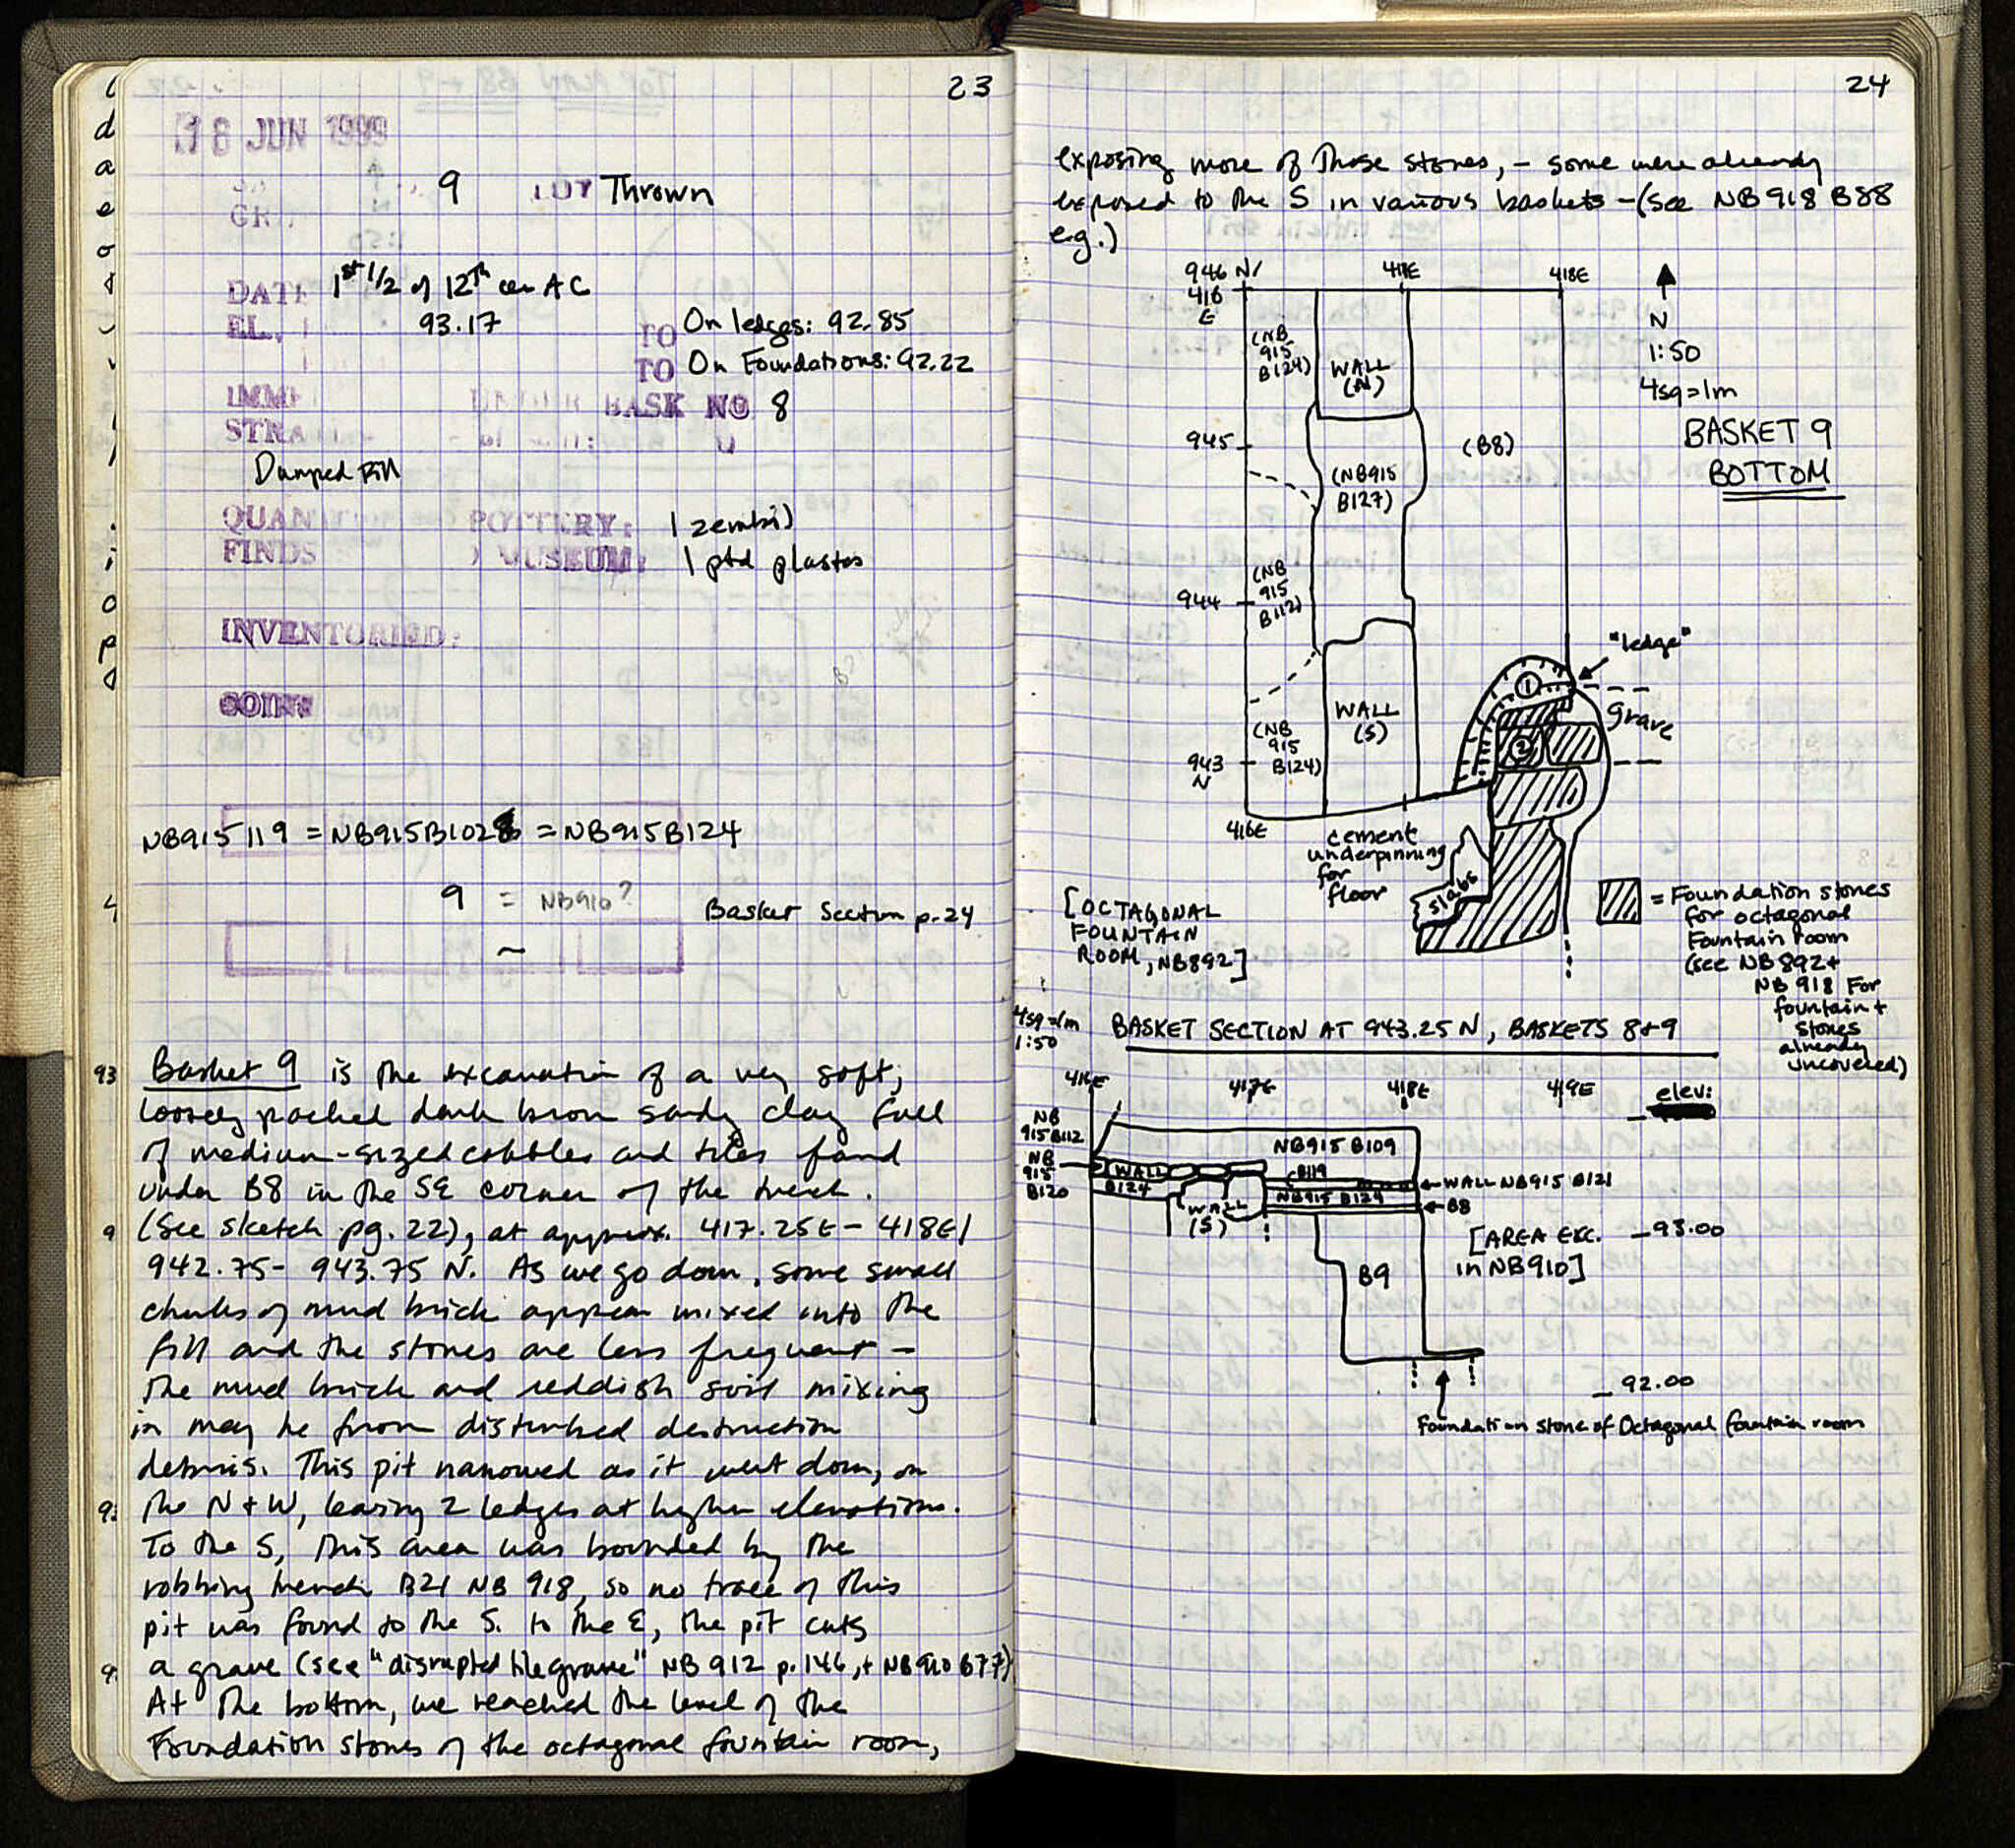 23
16 JUN 1999
9 LOT Thrown
GR
DATE 1st 1/2 of 12th cen AC
EL. 93.17 TO On ledges: 92.85
TO On Foundations: 92.22
IMME UNDER BASK NO 8
STRA
Dumped Fill
QUAN POTTERY: 1 zembil
FINDS MUSEUM: 1 ptd plaster
INVENTORIED:
COINS
NB915 119 = NB915B102 = NB915B124
9 = NB910? Basket Section p.24
~
Basket 9 is the excavation of a very soft,
loosely packed dark brown sandy clay full
of medium-sized cobbles and tiles found
under B8 in the SE corner of the trench.
(See sketch pg. 22), at approx. 417.25E - 418E/
942.75 - 943.75 N. As we go down, some small
chunks of mud brick appear mixed into the
fill and the stones are less frequent -
the mud brick and reddish soil mixing
in may be from disturbed destruction
debris. This pit narrowed as it went down, on
the N + W, leaving 2 ledges at higher elevations.
To the S, this area was bounded by the
robbing trench B21 NB 918, so no trace of this
pit was found to the S. to the E, the pit cuts
a grave (see "disrupted tile grave" NB 912 p.146, + NB910 B77)
At the bottom, we reached the level of the
Foundation stones of the octagonal fountain room,
24
exposing more of those stones, - some were already
exposed to the S in various baskets - (see NB 918 B88
e.g.)
946 N/
416
E
417E
418E
N
1:50
4sq=1m
BASKET 9
BOTTOM
(NB
915
B124)
WALL
(N)
945
(B8)
(NB915
B127)
944
(NB
915
B112)
"ledge"
1
grave
2
WALL
(S)
(NB
915
B124)
943
N
416E
cement
underpinning
for
floor
slabs
[OCTAGONAL
FOUNTAIN
ROOM, NB892]
= Foundation stones
for octagonal
Fountain room
(see NB 892 +
NB 918 For
fountain +
stones
already
uncovered)
4sq=1m
1:50
BASKET SECTION AT 943.25 N, BASKETS 8+9
416E
417E
418E
419E
elev:
NB
915B112
NB915 B109
NB
915
B120
WALL
B119
WALL NB915 B121
B124
NB915 B124
B8
WALL
(S)
[AREA EXC.
in NB910]
93.00
B9
92.00
Foundation stone of Octagonal fountain room